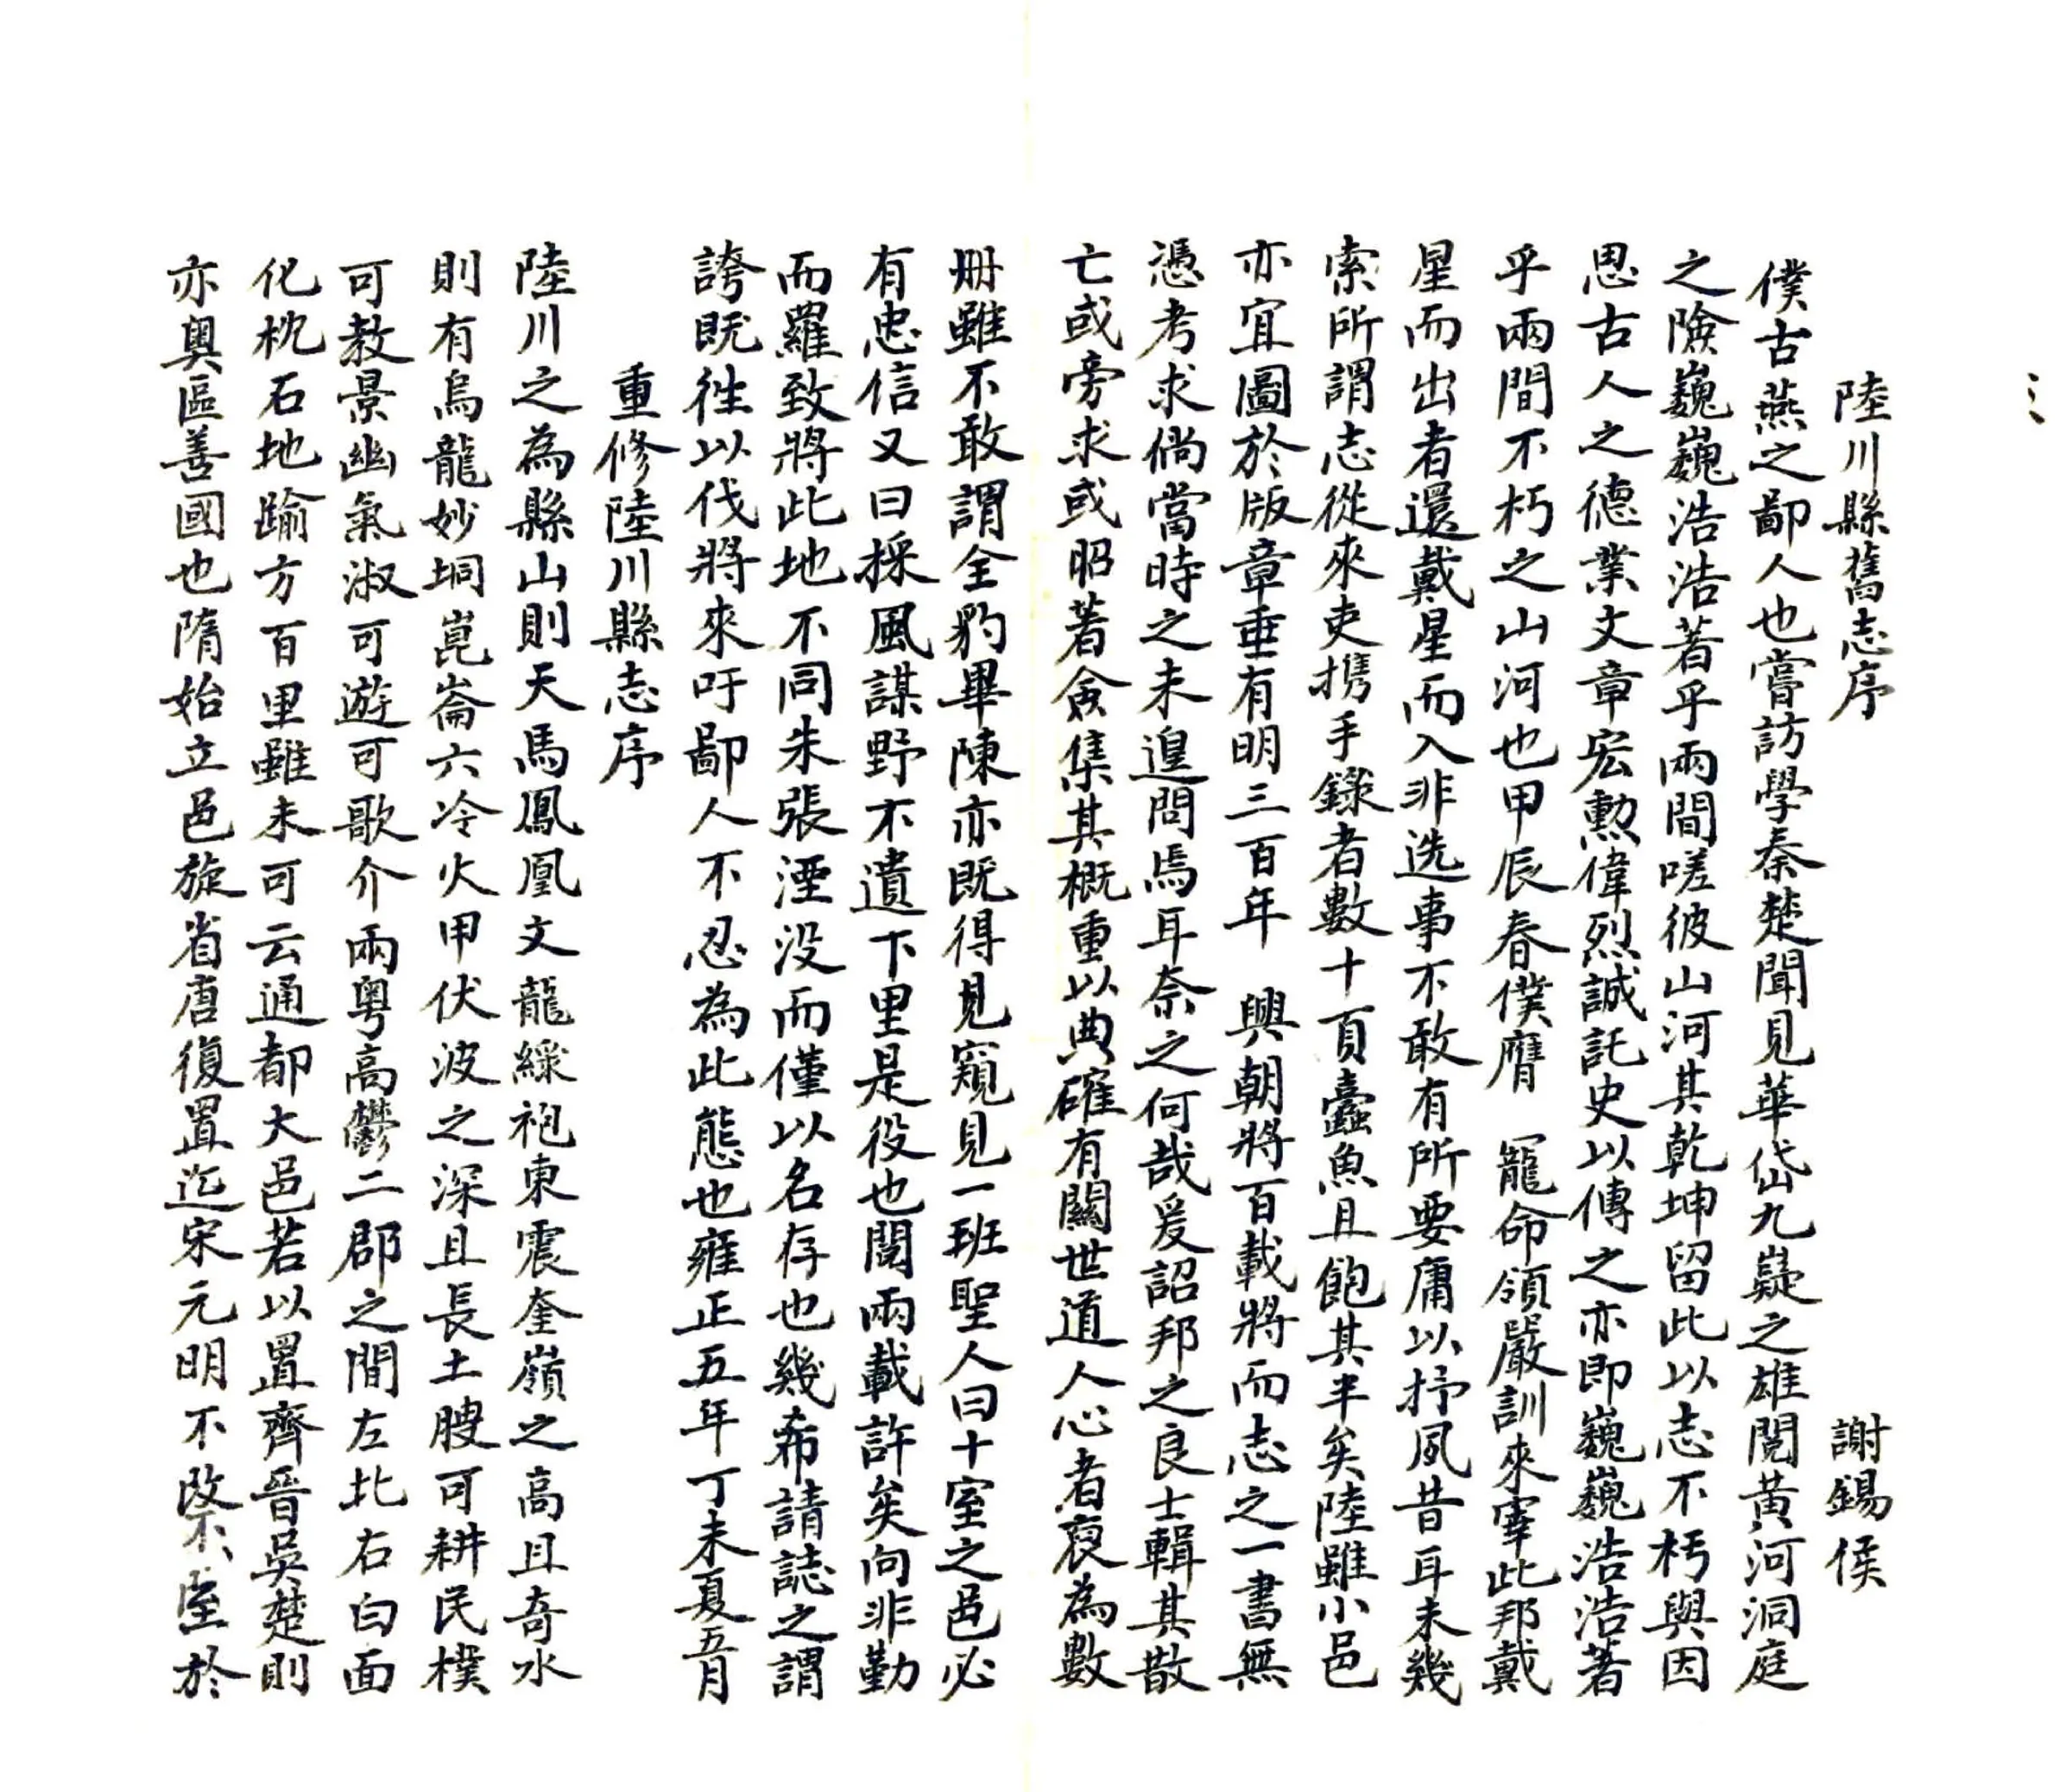 陸川縣舊志序 謝錫侯
僕古燕之鄙人也嘗訪學秦楚聞見華岱九嶷之雄閱黃河洞庭
之險巍巍浩浩著乎兩間嗟彼山河其乾坤留此以志不朽與因
思古人之德業文章宏勳偉烈誠託史以傳之亦即巍巍浩浩著
乎兩間不朽之山河也甲辰春僕膺 寵命領嚴訓來宰此邦戴
星而出者還戴星而入非选事不敢有所要庸以抒夙昔耳未幾
索所謂志從來吏携手錄者數十頁蠹魚且飽其半矣陸雖小邑
亦宜圖於版章垂有明三百年 興朝將百載將而志之一書無
憑考求倘當時之未遑問焉耳奈之何哉爰詔邦之良士輯其散
亡或旁求或昭著僉集其概重以典確有關世道人心者裒為數
册雖不敢謂全豹畢陳亦既得見窺見一班聖人曰十室之邑必
有忠信又曰採風謀野不遺下里是役也閱兩載許矣向非勤
而羅致將此地不同朱張湮沒而僅以名存也幾希請誌之謂
誇既徃以伐將來吁鄙人不忍為此態也雍正五年丁未夏五月
重修陸川縣志序
陸川之為縣山則天馬鳳凰文龍綠袍東震奎嶺之高且奇水
則有烏龍妙垌崑崙六冷火甲伏波之深且長土腴可耕民樸
可教景幽氣淑可遊可歌介兩粵高鬱二郡之間左北右白面
化枕石地踰方百里雖未可云通都大邑若以置齊晉吳楚則
亦奧區善國也隋始立邑旋省唐復置迄宋元明不改不至於